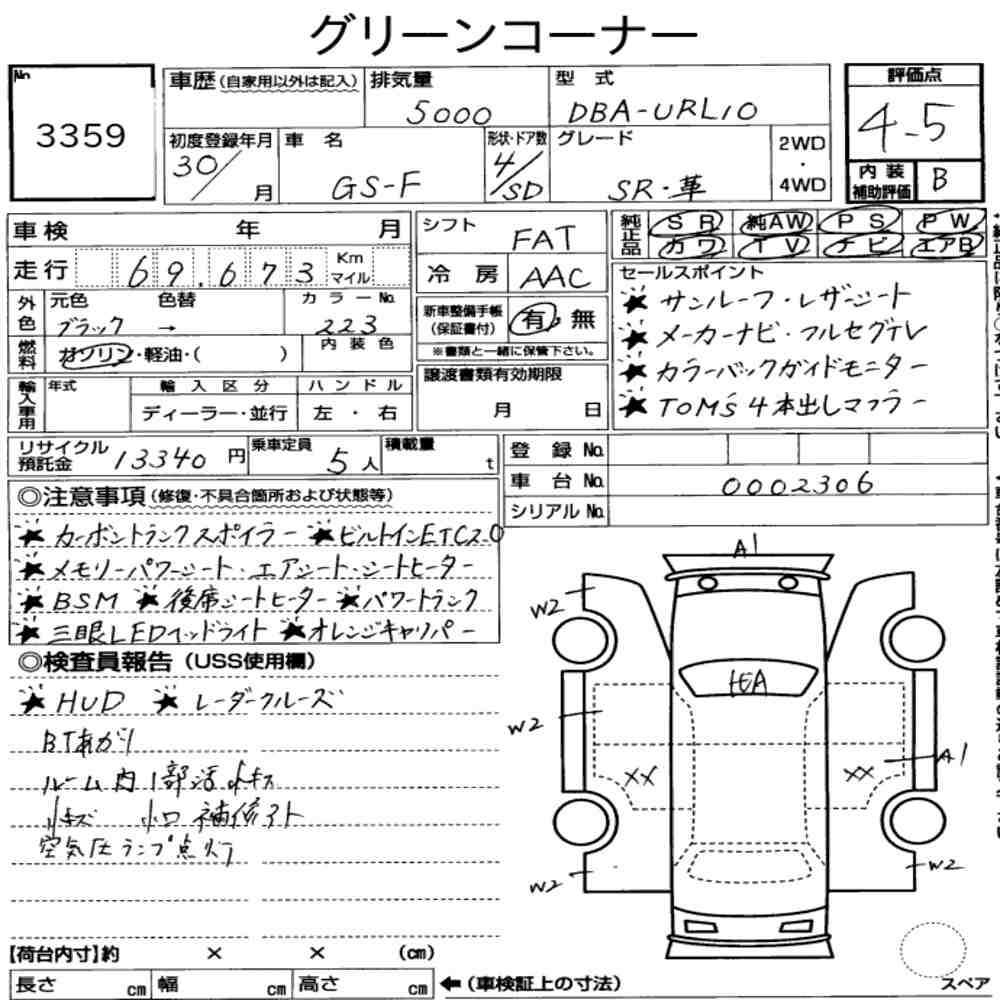 グリーンコーナー
No.
3359
車歴 (自家用以外は記入)
排気量
5000
型式
DBA-URL10
評価点
4.5
初度登録年月
30/ 月
車名
GS-F
形状・ドア数
4/SD
グレード
SR・革
2WD
・
4WD
内装
補助評価
B
車検 年 月
走行 69.673 Km マイル
シフト
FAT
冷房
AAC
純正品
SR 純AW PS PW
カワ TV ナビ エアB
外色
元色 色替
ブラック →
カラーNo.
223
燃料
ガソリン・軽油・( )
内装色
新車整備手帳
(保証書付)
有・無
※書類と一緒に保管下さい。
セールスポイント
★ サンルーフ・レザーシート
★ メーカーナビ・フルセグTV
★ カラーバックガイドモニター
★ TOM'S 4本出しマフラー
輸入車用
年式
輸入区分
ディーラー・並行
ハンドル
左・右
譲渡書類有効期限
月 日
リサイクル
預託金
13340 円
乗車定員
5人
積載量
t
登録No.
車台No.
0002306
シリアルNo.
◎注意事項 (修復・不具合箇所および状態等)
★ カーボントランクスポイラー ★ ビルトインETC2.0
★ メモリーパワーシート・エアシート・シートヒーター
★ BSM ★ 後席シートヒーター ★ パワートランク
★ 三眼LEDヘッドライト ★ オレンジキャリパー
◎検査員報告 (USS使用欄)
★ HUD ★ レーダークルーズ
BTあがり
ルーム内
小キズ 小凹 補修アト
空気圧ランプ点灯
A1
W2
W2
XX
XX
A1
W2
W2
【荷台内寸】約 × × (cm)
長さ cm 幅 cm 高さ cm
←(車検証上の寸法)
スペア